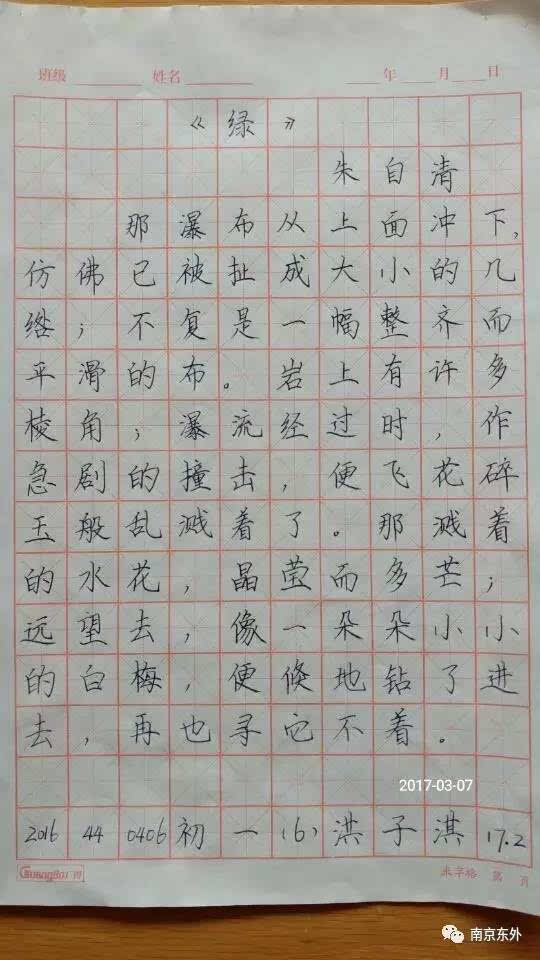 班级 姓名 年 月 日
《绿》
朱自清
那瀑布从上面冲下,
仿佛已被扯成大小的几
绺；不复是一幅整齐而
平滑的布。岩上有许多
棱角；瀑流经过时，作
急剧的撞击，便飞花碎
玉般乱溅着了。那溅着
的水花，晶莹而多芒；
远望去，像一朵朵小小
的白梅，便倏地钻了进
去，再也寻它不着。
2017-03-07
2016 44 0406 初一(6) 洪子淇 17.2
GuangBo 米字格 第 页
南京东外